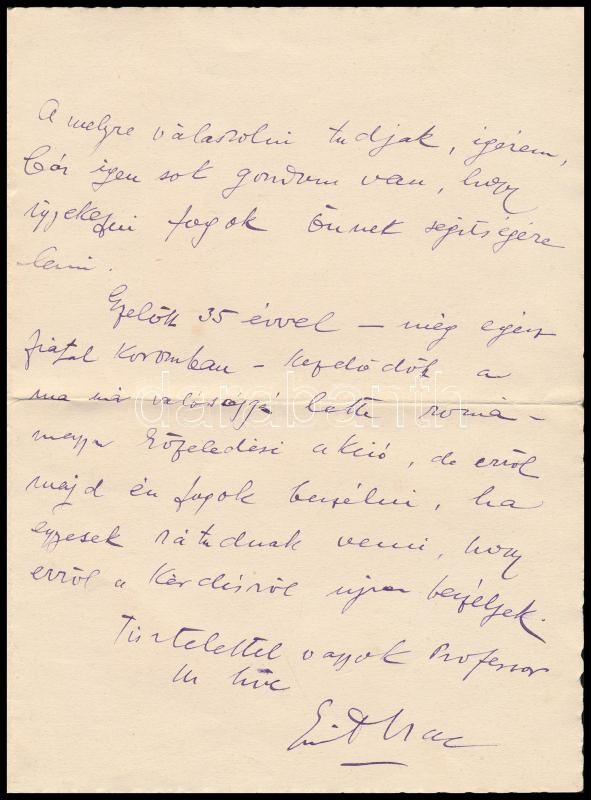 A melyre válaszolni tudjak, igérem,
bár igen sok gondom van, hogy
igyekezni fogok Önnek segitségére
lenni.
Ezelőtt 35 évvel – még egész
fiatal koromban – kezdődött a
ma már valósággá lett román-
magyar közeledési akció, de erről
majd én fogok beszélni, ha
egyesek rá tudnak venni, hogy
erről a kérdésről ujra beszéljek.
Tisztelettel vagyok Professor
Ur hive
Emil Isac
darabanth